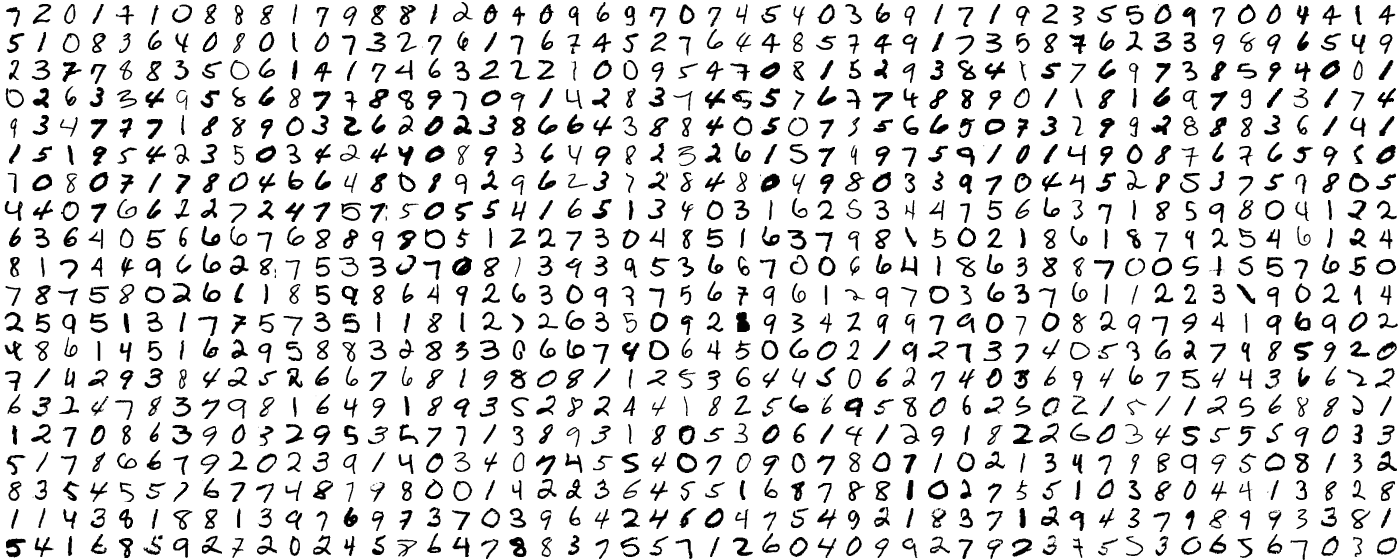 7 2 0 1 7 1 0 8 8 8 1 7 9 8 8 1 2 0 4 0 9 6 9 7 0 7 4 5 4 0 3 6 9 1 7 1 9 2 3 5 5 0 9 7 0 0 4 4 1 4
5 1 0 8 3 6 4 0 8 0 1 0 7 3 2 7 6 1 7 6 7 4 5 2 7 6 4 4 8 5 7 4 9 1 7 3 5 8 7 6 2 3 3 9 8 9 6 5 4 9
2 3 7 7 8 8 3 5 0 6 1 4 1 7 4 6 3 2 2 2 1 0 0 9 5 4 7 0 8 1 5 2 9 3 8 4 1 5 7 6 9 7 3 8 5 9 4 0 0 1
0 2 6 3 3 4 9 5 8 6 8 7 7 8 8 9 7 0 9 1 4 2 8 3 7 4 5 5 7 6 7 7 4 8 8 9 0 1 1 8 1 6 9 7 9 1 3 1 7 4
9 3 4 7 7 7 1 8 8 9 0 3 2 6 2 0 2 3 8 6 6 4 3 8 8 4 0 5 0 7 3 5 6 6 5 0 7 3 2 9 9 2 8 8 8 3 6 1 4 1
1 5 1 9 5 4 2 3 5 0 3 4 2 4 4 0 8 9 3 6 4 9 8 2 3 2 6 1 5 7 9 9 7 5 9 1 0 1 4 9 0 8 7 6 7 6 5 9 5 0
7 0 8 0 7 1 7 8 0 4 6 6 4 8 0 8 9 2 9 6 2 3 7 2 8 4 8 0 4 9 8 0 3 3 9 7 0 4 4 5 2 8 5 3 7 5 9 8 0 5
4 4 0 7 6 6 2 2 7 2 4 7 5 7 5 0 5 5 4 1 6 5 1 3 4 0 3 1 6 2 5 3 4 4 7 5 6 6 3 7 1 8 5 9 8 0 4 1 2 2
6 3 6 4 0 5 6 6 6 7 6 8 8 9 8 0 5 1 2 2 7 3 0 4 8 5 1 6 3 7 9 8 1 5 0 2 1 8 6 1 8 7 9 2 5 4 6 1 2 4
8 1 7 4 4 9 6 6 2 8 7 5 3 3 0 7 0 8 1 3 9 3 9 5 3 6 6 7 0 0 6 6 4 1 8 6 3 8 8 7 0 0 5 1 5 5 7 6 5 0
7 8 7 5 8 0 2 6 6 1 8 5 9 8 6 4 9 2 6 3 0 9 3 7 5 6 7 9 6 1 2 9 7 0 3 6 3 7 6 1 1 2 2 3 1 9 0 2 1 4
2 5 9 5 1 3 1 7 7 5 7 3 5 1 1 8 1 2 2 6 3 5 0 9 2 8 9 3 4 2 9 9 7 9 0 7 0 8 2 9 7 9 4 1 9 6 9 0 2
4 8 6 1 4 5 1 6 2 9 5 8 8 3 2 8 3 3 6 6 6 7 4 0 6 4 5 0 6 0 2 1 9 2 7 3 7 4 0 5 3 6 2 7 4 8 5 9 2 0
7 1 4 2 9 3 8 4 2 2 5 2 6 6 7 6 8 1 9 8 0 8 1 1 2 5 3 6 4 4 5 0 6 2 7 4 0 3 6 9 4 6 7 5 4 4 3 6 6 2 2
6 3 2 4 7 8 3 7 9 8 1 6 4 9 1 8 9 3 5 2 8 2 4 4 1 8 2 5 6 6 9 5 8 0 6 2 5 0 2 1 5 1 1 2 5 6 8 8 2 1
1 2 7 0 8 6 3 9 0 3 2 9 5 3 5 7 7 1 3 8 9 3 1 8 0 5 3 0 6 1 4 1 2 9 1 8 2 2 6 0 3 4 5 5 5 5 9 0 3 3
5 1 7 8 6 6 7 9 2 0 2 3 9 1 4 0 3 4 0 7 4 5 5 4 0 7 0 9 0 7 8 0 7 1 0 2 1 3 4 7 9 8 9 9 5 0 8 1 3 2
8 3 5 4 5 5 7 6 7 7 4 8 7 9 8 0 0 1 4 2 2 3 6 4 5 5 1 6 8 7 8 8 1 0 2 7 5 5 1 0 3 8 0 4 4 1 3 8 2 8
1 1 4 3 8 1 8 8 1 3 9 7 6 9 7 3 7 0 3 9 6 4 2 4 6 0 4 7 5 4 9 2 1 8 3 7 1 2 9 4 3 7 9 8 9 9 3 3 8 1
5 4 1 6 8 5 9 2 7 2 0 2 4 5 8 6 4 7 8 8 3 7 5 5 7 1 2 6 0 4 0 6 9 9 2 7 2 3 7 5 5 3 0 6 5 6 9 0 7 9